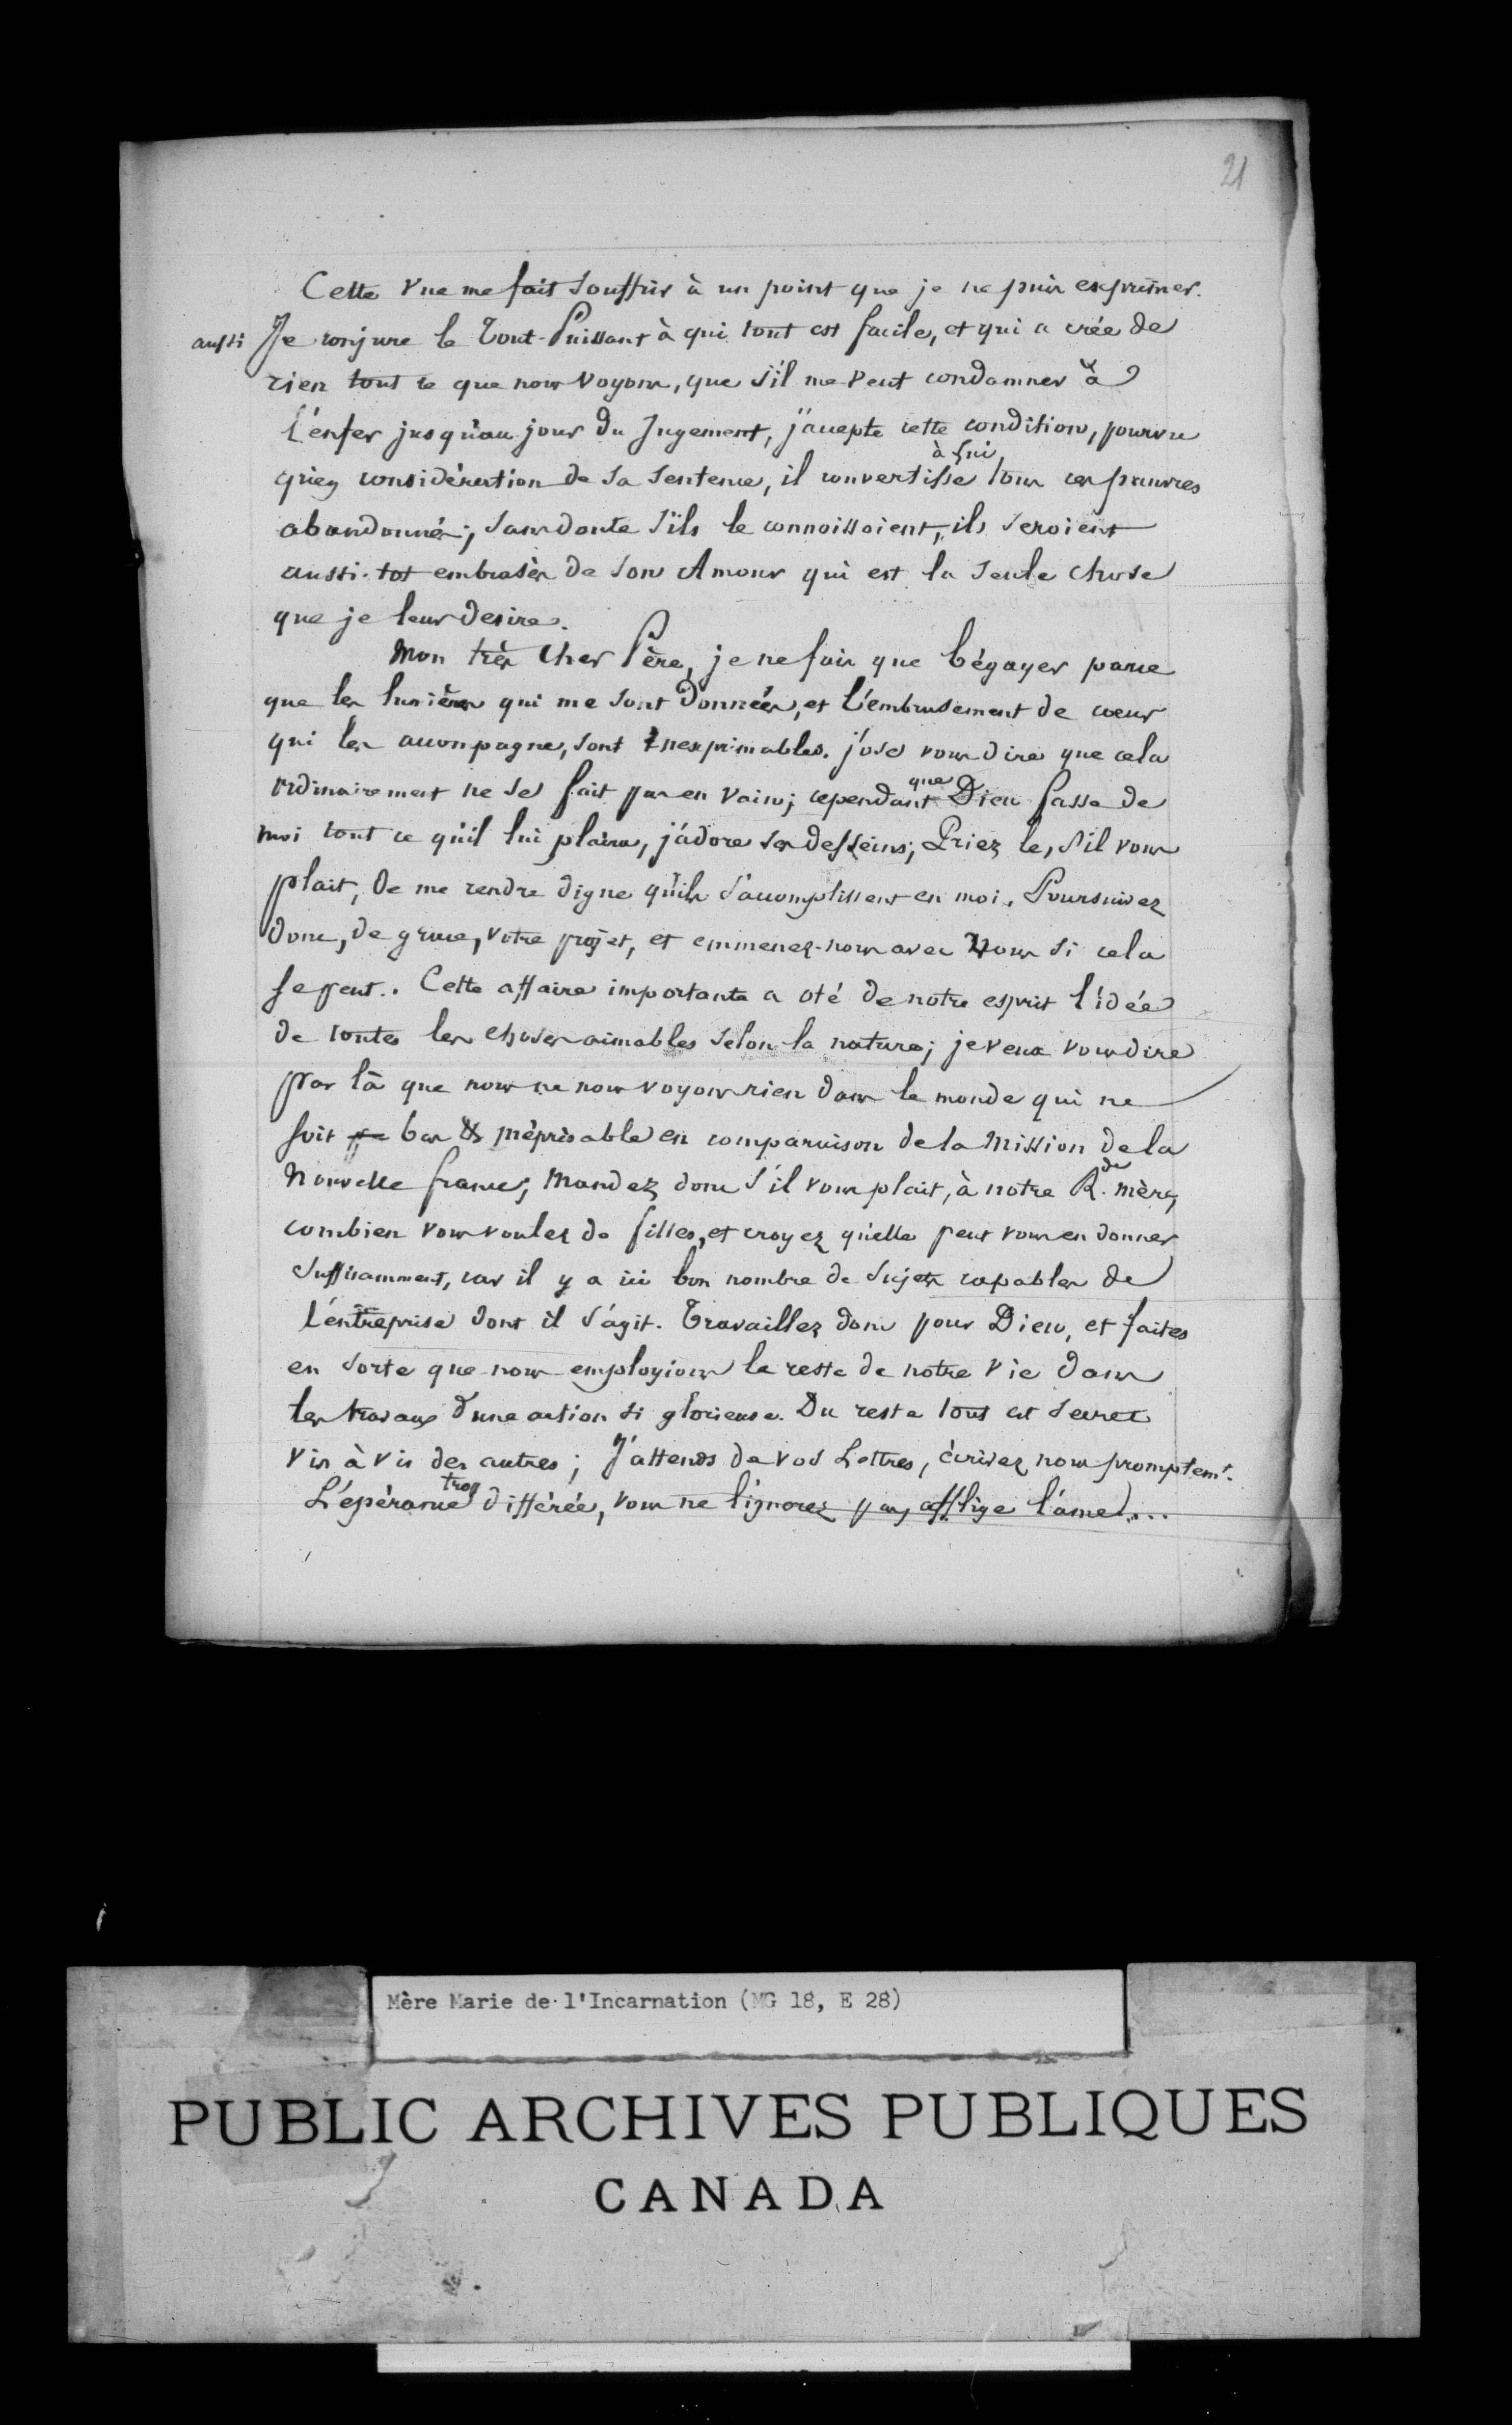 21
Cette vue me fait souffrir à un point que je ne puis exprimer.
aussi Je conjure le Tout-Puissant à qui tout est facile, et qui a crée de
rien tout ce que nous voyons, que s'il me veut condamner à
l'enfer jusqu'au jour du Jugement, j'accepte cette condition, pourvu
à Lui
qu'en considération de sa sentence, il convertisse tous ces pauvres
abandonnés; sans doute s'ils le connoissoient, ils seroient
aussi-tot embrasés de son Amour qui est la seule chose
que je leur desire.
Mon très Cher Père, je ne fais que bégayer parce
que les lumières qui me sont données, et l'embrasement de coeur
qui les accompagne, sont Inexprimables. j'ose vous dire que cela
que
ordinairement ne se fait pas en vain; cependant Dieu fasse de
moi tout ce qu'il lui plaira, j'adore ses desseins; Priez le, s'il vous
plait, de me rendre digne qu'ils s'accomplissent en moi. Poursuivez
donc, de grace, votre projet, et emmenez-nous avec Vous si cela
se peut. Cette affaire importante a oté de notre esprit l'idée
de toutes les choses aimables selon la nature; je veux vous dire
par là que nous ne nous voyons rien dans le monde qui ne
soit bas & méprisable en comparaison de la Mission de la
Nouvelle france; Mandez donc s'il vous plait, à notre R.de mère,
combien vous voulez de filles, et croyez qu'elle peut vous en donner
suffisamment, car il y a ici bon nombre de sujets capables de
l'entreprise dont il s'agit. Travaillez donc pour Dieu, et faites
en sorte que nous employions le reste de notre vie dans
les travaux d'une action si glorieuse. Du reste tout est secret
vis à vis des autres; J'attends de vos Lettres, écrivez nous promptemt.
trop
L'espérance différée, vous ne l'ignorez pas, afflige l'ame...
Mère Marie de l'Incarnation (MG 18, E 28)
PUBLIC ARCHIVES PUBLIQUES
CANADA